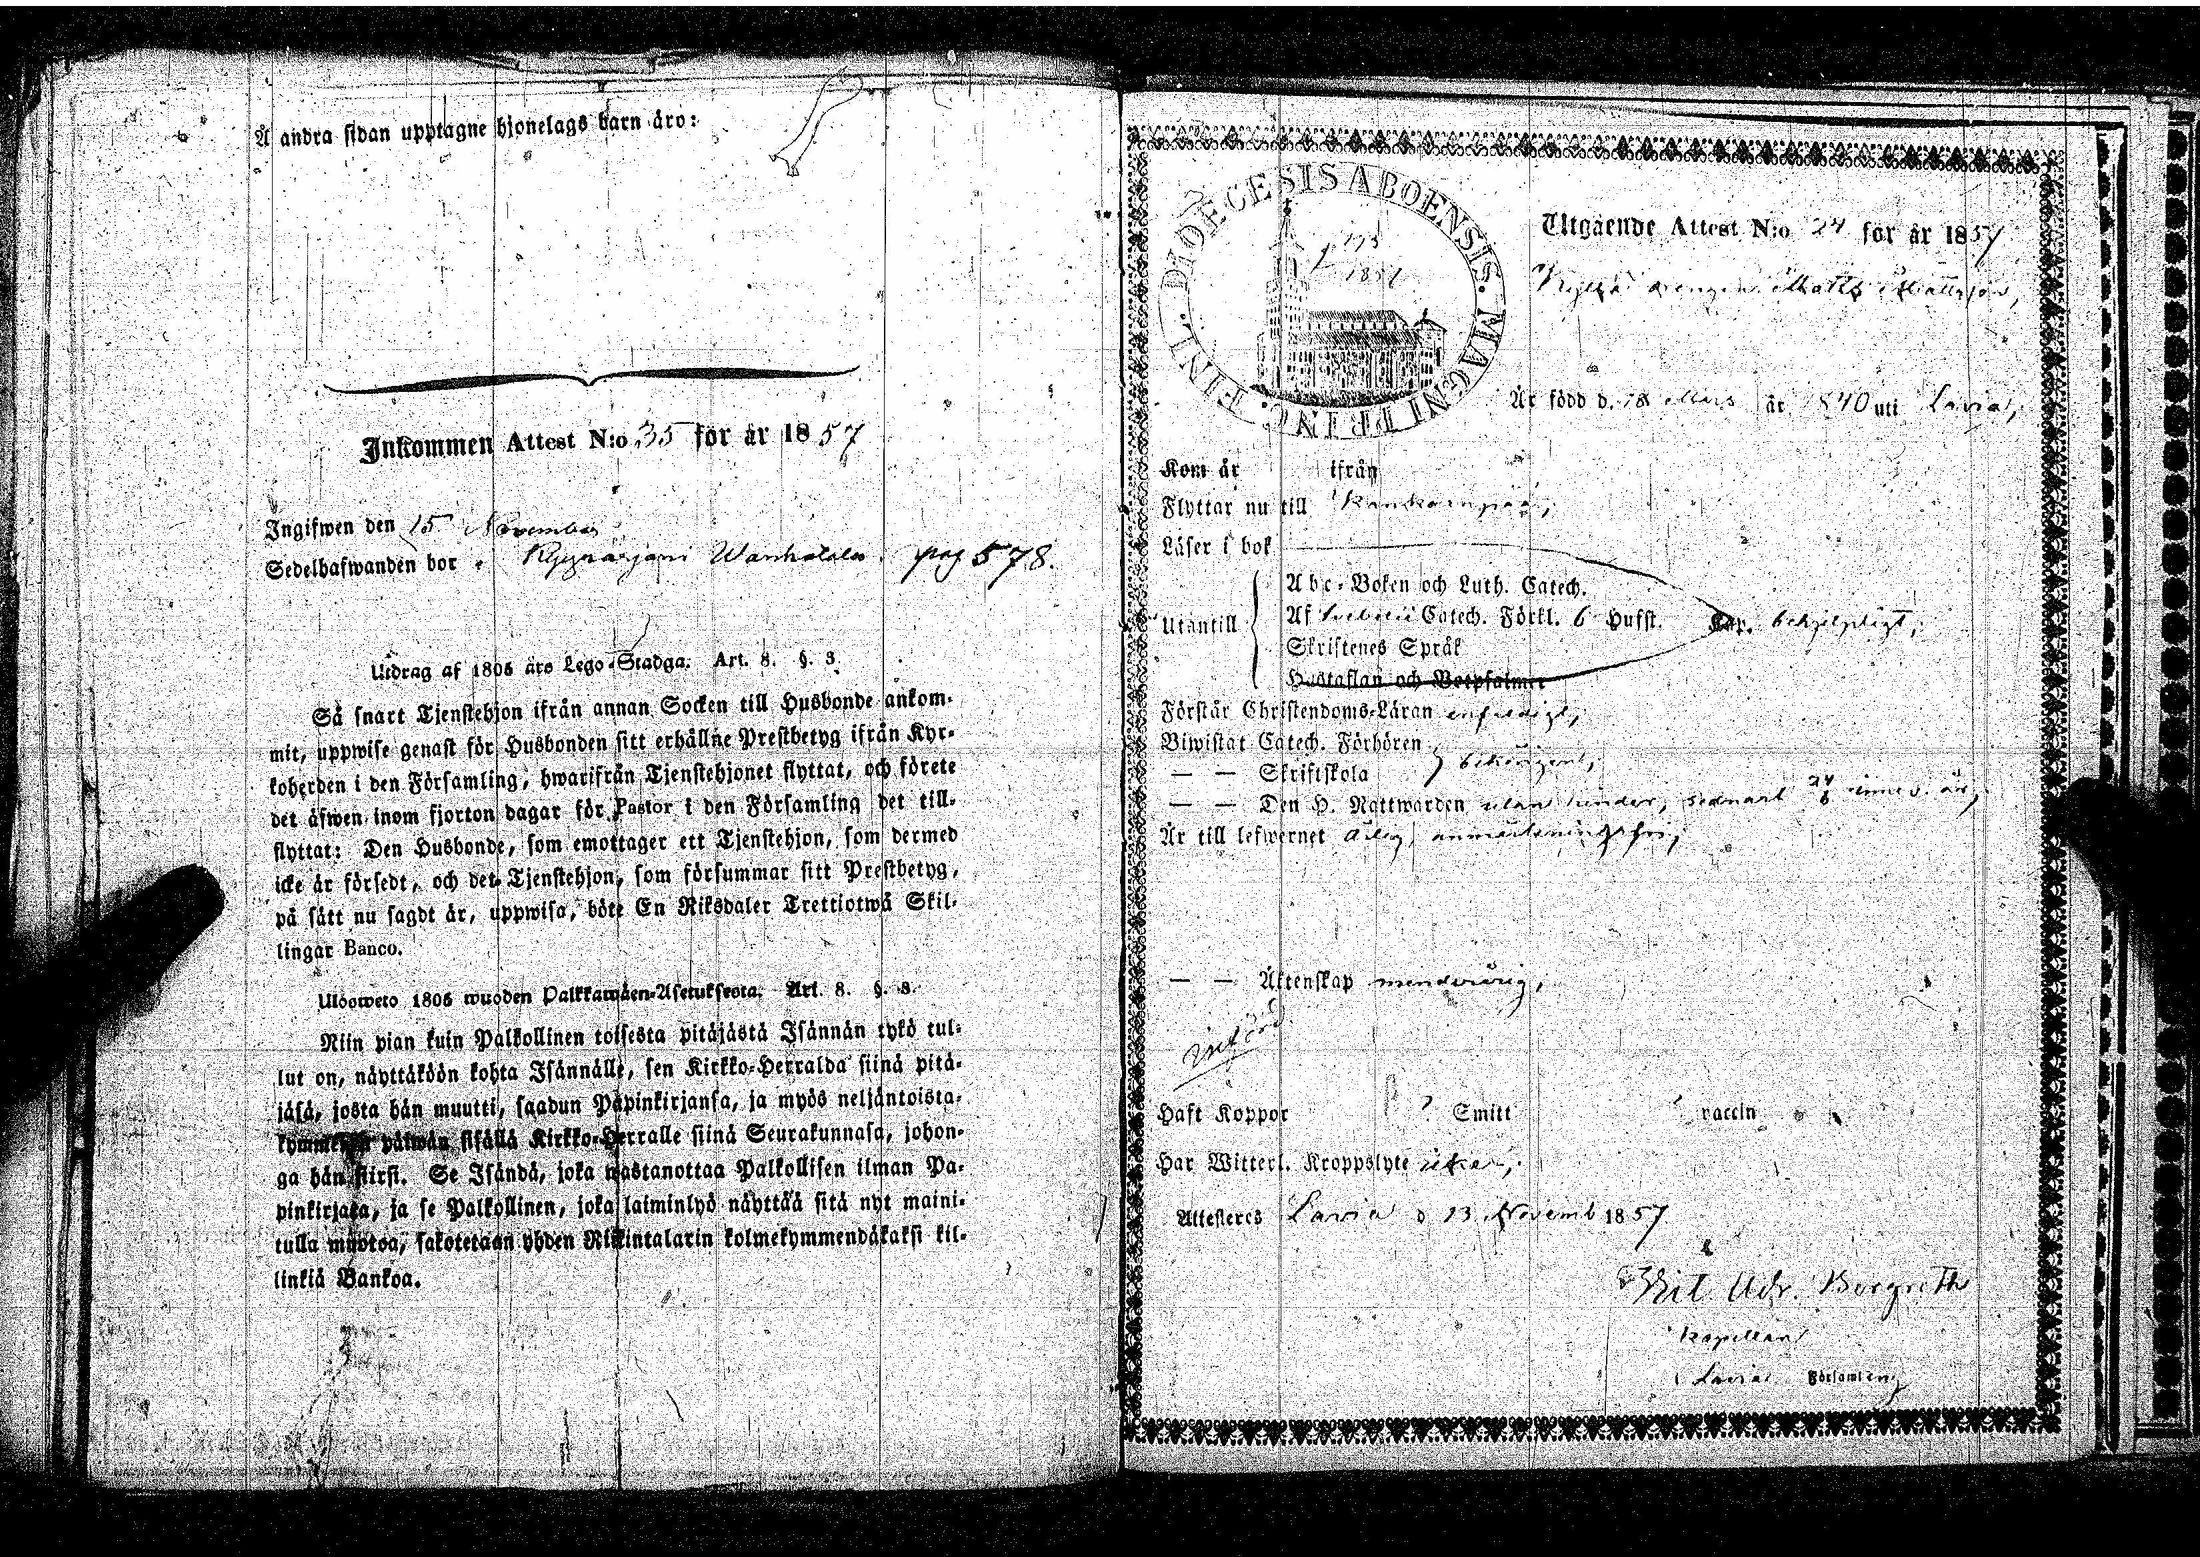 Å andra sidan upptagne hjonelags barn äro:
Inkommen Attest N:o 35 för år 1857
Ingifwen den 15 November
Sedelhafwanden bor Wanhatalo pag 578.
Utdrag af 1805 års Lego-Stadga. Art. 8. §. 3.
Så snart Tjenstehjon ifrån annan Socken till Husbonde ankom-
mit, uppwise genast för Husbonden sitt erhållne Prestbetyg ifrån Kyr-
koherden i den Församling, hwarifrån Tjenstehjonet flyttat, och förete
det äfwen inom fjorton dagar för Pastor i den Församling det till-
flyttat: Den Husbonde, som emottager ett Tjenstehjon, som dermed
icke är försedt, och det Tjenstehjon, som försummar sitt Prestbetyg,
på sätt nu sagdt är, uppwisa, böte En Riksdaler Trettiotwå Skil-
lingar Banco.
Ulosweto 1805 wuoden Palkkawäen-Asetuksesta. Art. 8. §. 3.
Niin pian kuin Palkollinen toisesta pitäjästä Isännän tykö tul-
lut on, näyttäköön kohta Isännälle, sen Kirkko-Herralda siinä pitä-
jäsä, josta hän muutti, saadun Papinkirjansa, ja myös neljäntoista-
kymmenen päiwän sisällä Kirkko-Herralle siinä Seurakunnasa, johon-
ga hän siirsi. Se Isändä, joka wastanottaa Palkollisen ilman Pa-
pinkirjata, ja se Palkollinen, joka laiminlyö näyttää sitä nyt maini-
tulla muotoa, sakotetaan yhden Riikintalarin kolmekymmendäkaksi kil-
linkiä Bankoa.
DIOECESIS ABOENSIS. MAGNI PRINC. FINL.
1857
Utgående Attest N:o 24 för år 1857
drengen Matts Mattsson,
Är född d. 18 Mars år 1840 uti Lavia,
Kom år ifrån
Flyttar nu till Kankaanpää,
Läser i bok
Utantill
Abc-Boken och Luth. Catech.
Af Svebelii Catech. Förkl. 6 Hufst. Cap. behjelpligt,
Skriftenes Språk
Hustaflan och Botpsalmer
Förstår Christendoms-Läran enfaldigt,
Biwistat Catech. Förhören
— — Skriftskola behörigen,
— — Den H. Nattwarden utan hinder, sednast 24/6 innev. år,
Är till lefwernet ärlig, anmärkningsfri,
— — Äktenskap minderårig,
införd
Haft Koppor ? Smitt vaccin
Har Witterl. Kroppslyte icke,
Attesteres Lavia d 13 Novemb 1857
Adr. Borgreth
Kapellan
Lavia Församling